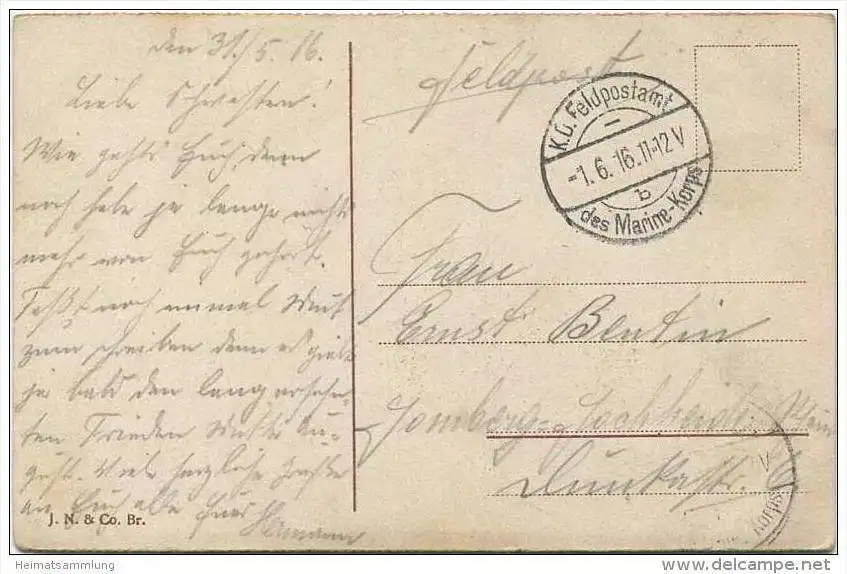 den 31./5. 16.
Liebe Schwester!
Wie gehts Euch, denn
noch habe ja lange nichts
mehr von Euch gehört.
Faßt noch einmal Mut
zum schreiben denn es giebt
ja bald den lang ersehn-
ten Frieden Mitte Au-
gust. Viele herzliche Grüße
an Euch alle Euer
Hermann
J. N. & Co. Br.
Feldpost
K.D. Feldpostamt
-1.6.16.11-12V
b
des Marine-Korps
Frau
Ernst Bentin
Homberg-Hochheide Rhein
V
Korps
Heimatsammlung
delcampe.net